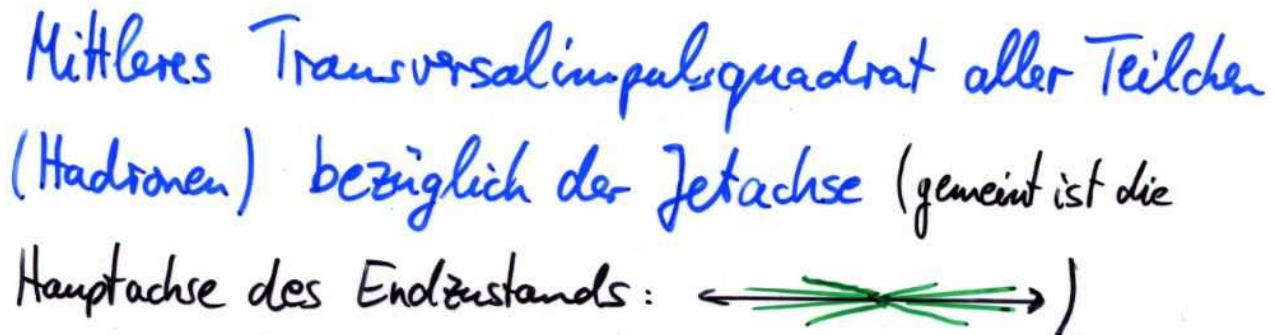 Mittleres Transversalimpulsquadrat aller Teilchen
(Hadronen) bezüglich der Jetachse (gemeint ist die
Hauptachse des Endzustands: )